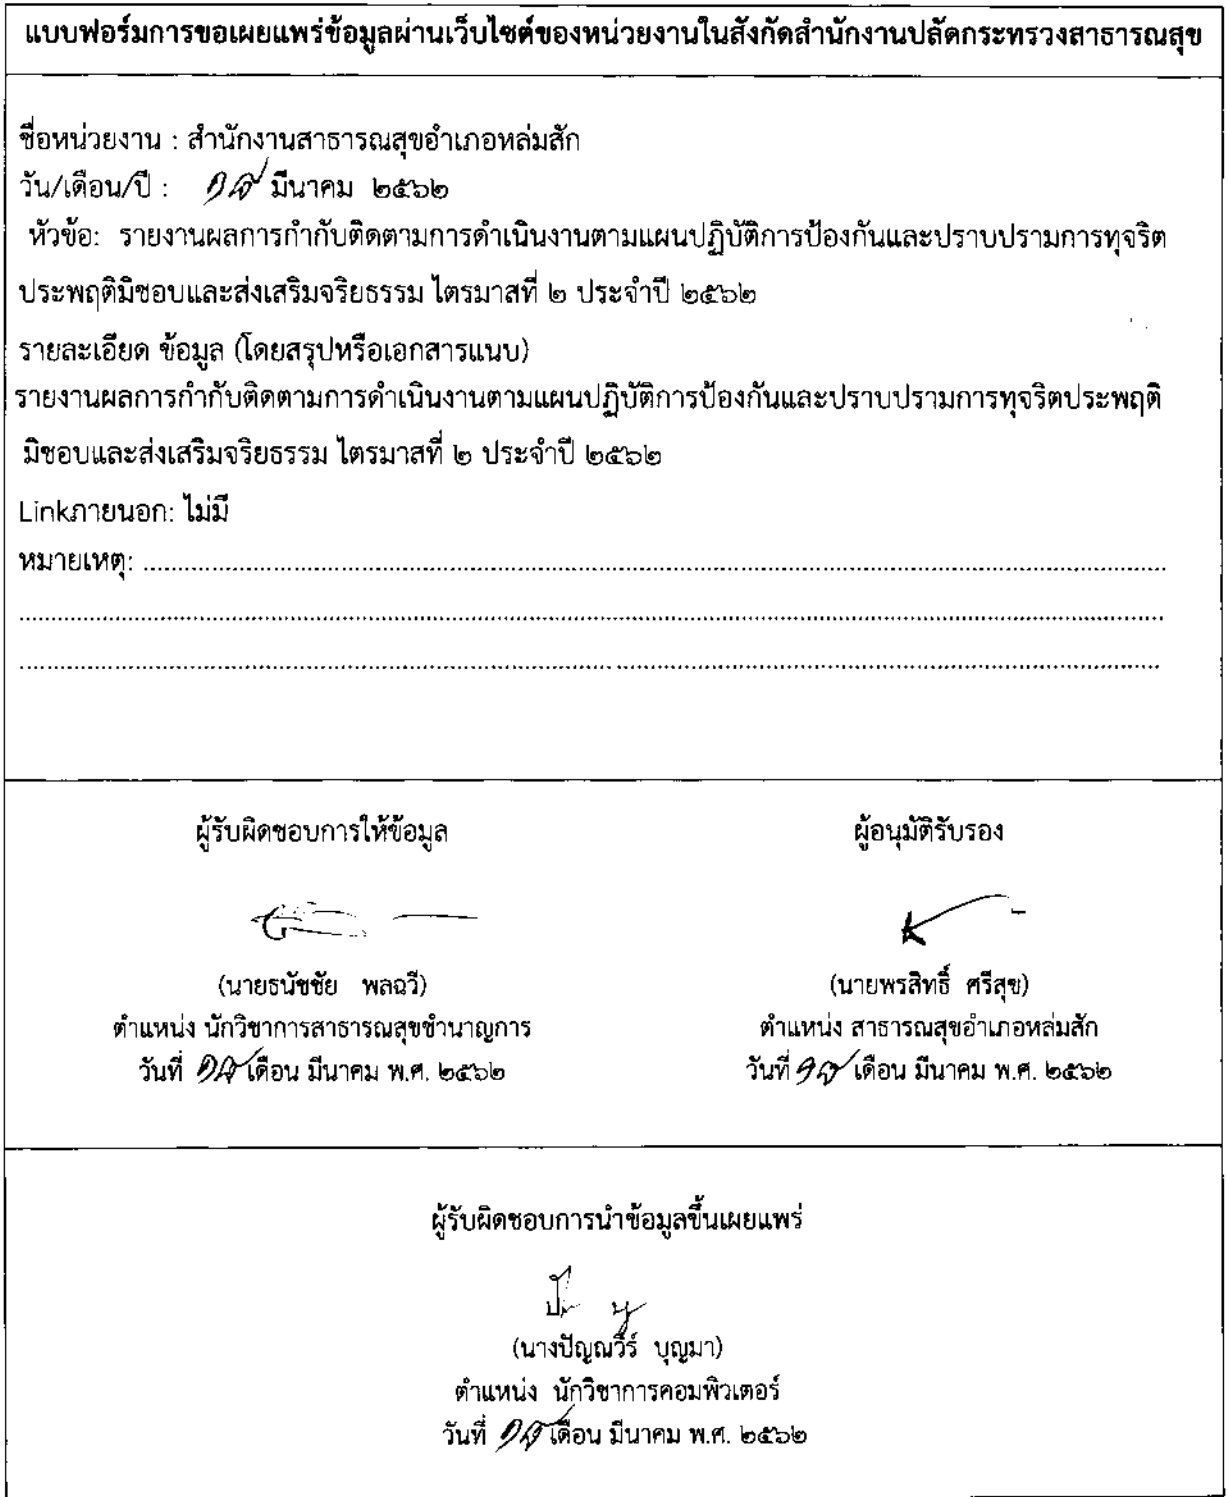 แบบฟอร์มการขอเผยแพร่ข้อมูลผ่านเว็บไซต์ของหน่วยงานในสังกัดสำนักงานปลัดกระทรวงสาธารณสุข
ชื่อหน่วยงาน : สำนักงานสาธารณสุขอำเภอหล่มสัก
วัน/เดือน/ปี : มีนาคม ๒๕๖๒
หัวข้อ: รายงานผลการกำกับติดตามการดำเนินงานตามแผนปฏิบัติการป้องกันและปราบปรามการทุจริต
ประพฤติมิชอบและส่งเสริมจริยธรรม ไตรมาสที่ ๒ ประจำปี ๒๕๖๒
รายละเอียด ข้อมูล (โดยสรุปหรือเอกสารแนบ)
รายงานผลการกำกับติดตามการดำเนินงานตามแผนปฏิบัติการป้องกันและปราบปรามการทุจริตประพฤติ
มิชอบและส่งเสริมจริยธรรม ไตรมาสที่ ๒ ประจำปี ๒๕๖๒
Linkภายนอก: ไม่มี
หมายเหตุ: ........................................................................
........................................................................
........................................................................
ผู้รับผิดชอบการให้ข้อมูล
(นายธนัชชัย พลฉวี)
ตำแหน่ง นักวิชาการสาธารณสุขชำนาญการ
วันที่ เดือน มีนาคม พ.ศ. ๒๕๖๒
ผู้อนุมัติรับรอง
(นายพรสิทธิ์ ศรีสุข)
ตำแหน่ง สาธารณสุขอำเภอหล่มสัก
วันที่ เดือน มีนาคม พ.ศ. ๒๕๖๒
ผู้รับผิดชอบการนำข้อมูลขึ้นเผยแพร่
(นางปัญณวีร์ บุญมา)
ตำแหน่ง นักวิชาการคอมพิวเตอร์
วันที่ เดือน มีนาคม พ.ศ. ๒๕๖๒